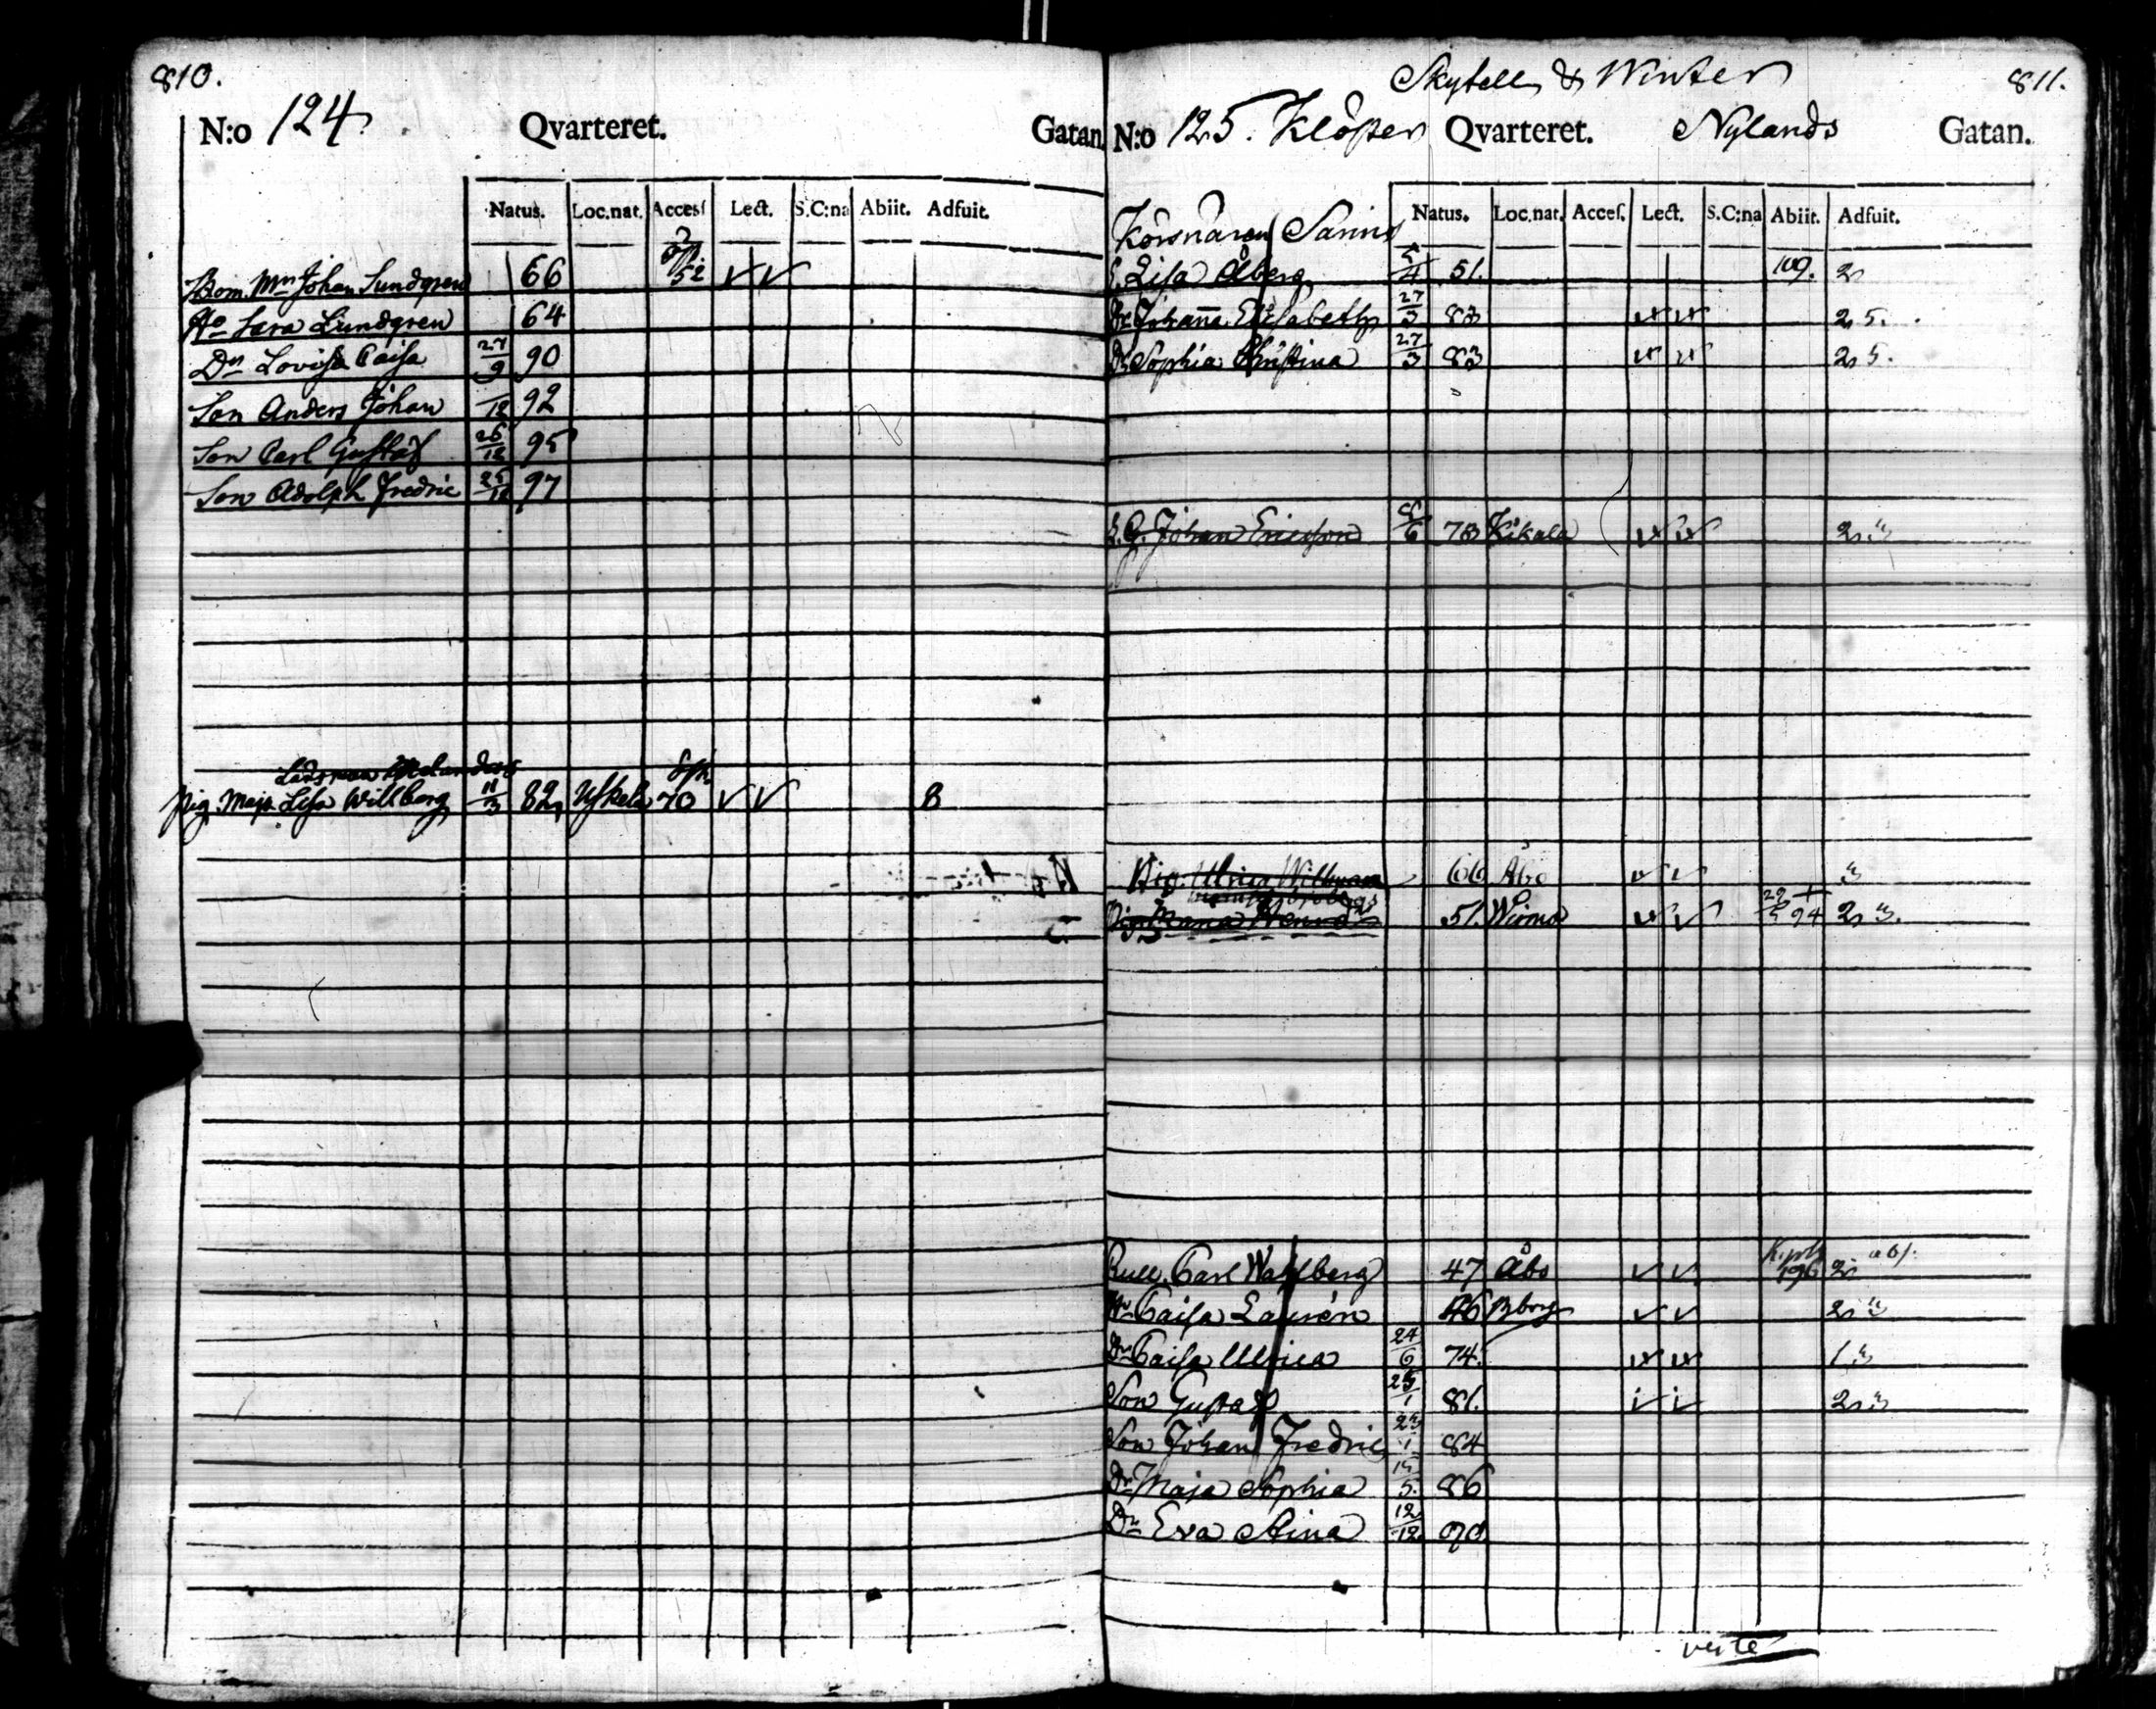 810.
N:o 124 Qvarteret. Gatan.
Natus. Loc.nat. Accesſ Lect. S.C:na Abiit. Adfuit.
Bom. Mn Johan Lundgren 66 52
Ho Sara Lundgren 64
Dr Lovisa Caisa 27/9 90
Son Anders Johan /12 92
Son Carl Gustaf 26/12 95
Son Adolph Fredric 25/12 97
Pig. Maja Lisa Willberg 11/3 82 Uskela 70 8
Skytell & Winter 811.
N:o 125. Klöster Qvarteret. Nylands Gatan.
Natus. Loc.nat. Acceſ. Lect. S.C:na Abiit. Adfuit.
Körsnären
E. Lisa Åberg 5/4 51. 109. 2
Dr Johanna Elisabeth 27/3 83 2 5.
Dr Sophia Christina 27/3 83 2 5.
L. G. Johan Ericsson /6 78 Kikala 2 3
Pig. Ulrica Willman 66 Åbo 3
Pig. Maria 51. Wirmo 94 2 3.
Carl Wahlberg 47 Åbo 196 2
Hu Caisa Lauren 46 Bborg 2 3
Dr Caisa Ulrica 24/6 74. 1 3
Son Gustaf 25/1 81. 2 3
Son Johan Fredric 23/1 84
Dr Maja Sophia 15/5. 86
Dr Eva Stina 12/12. 90.
verte